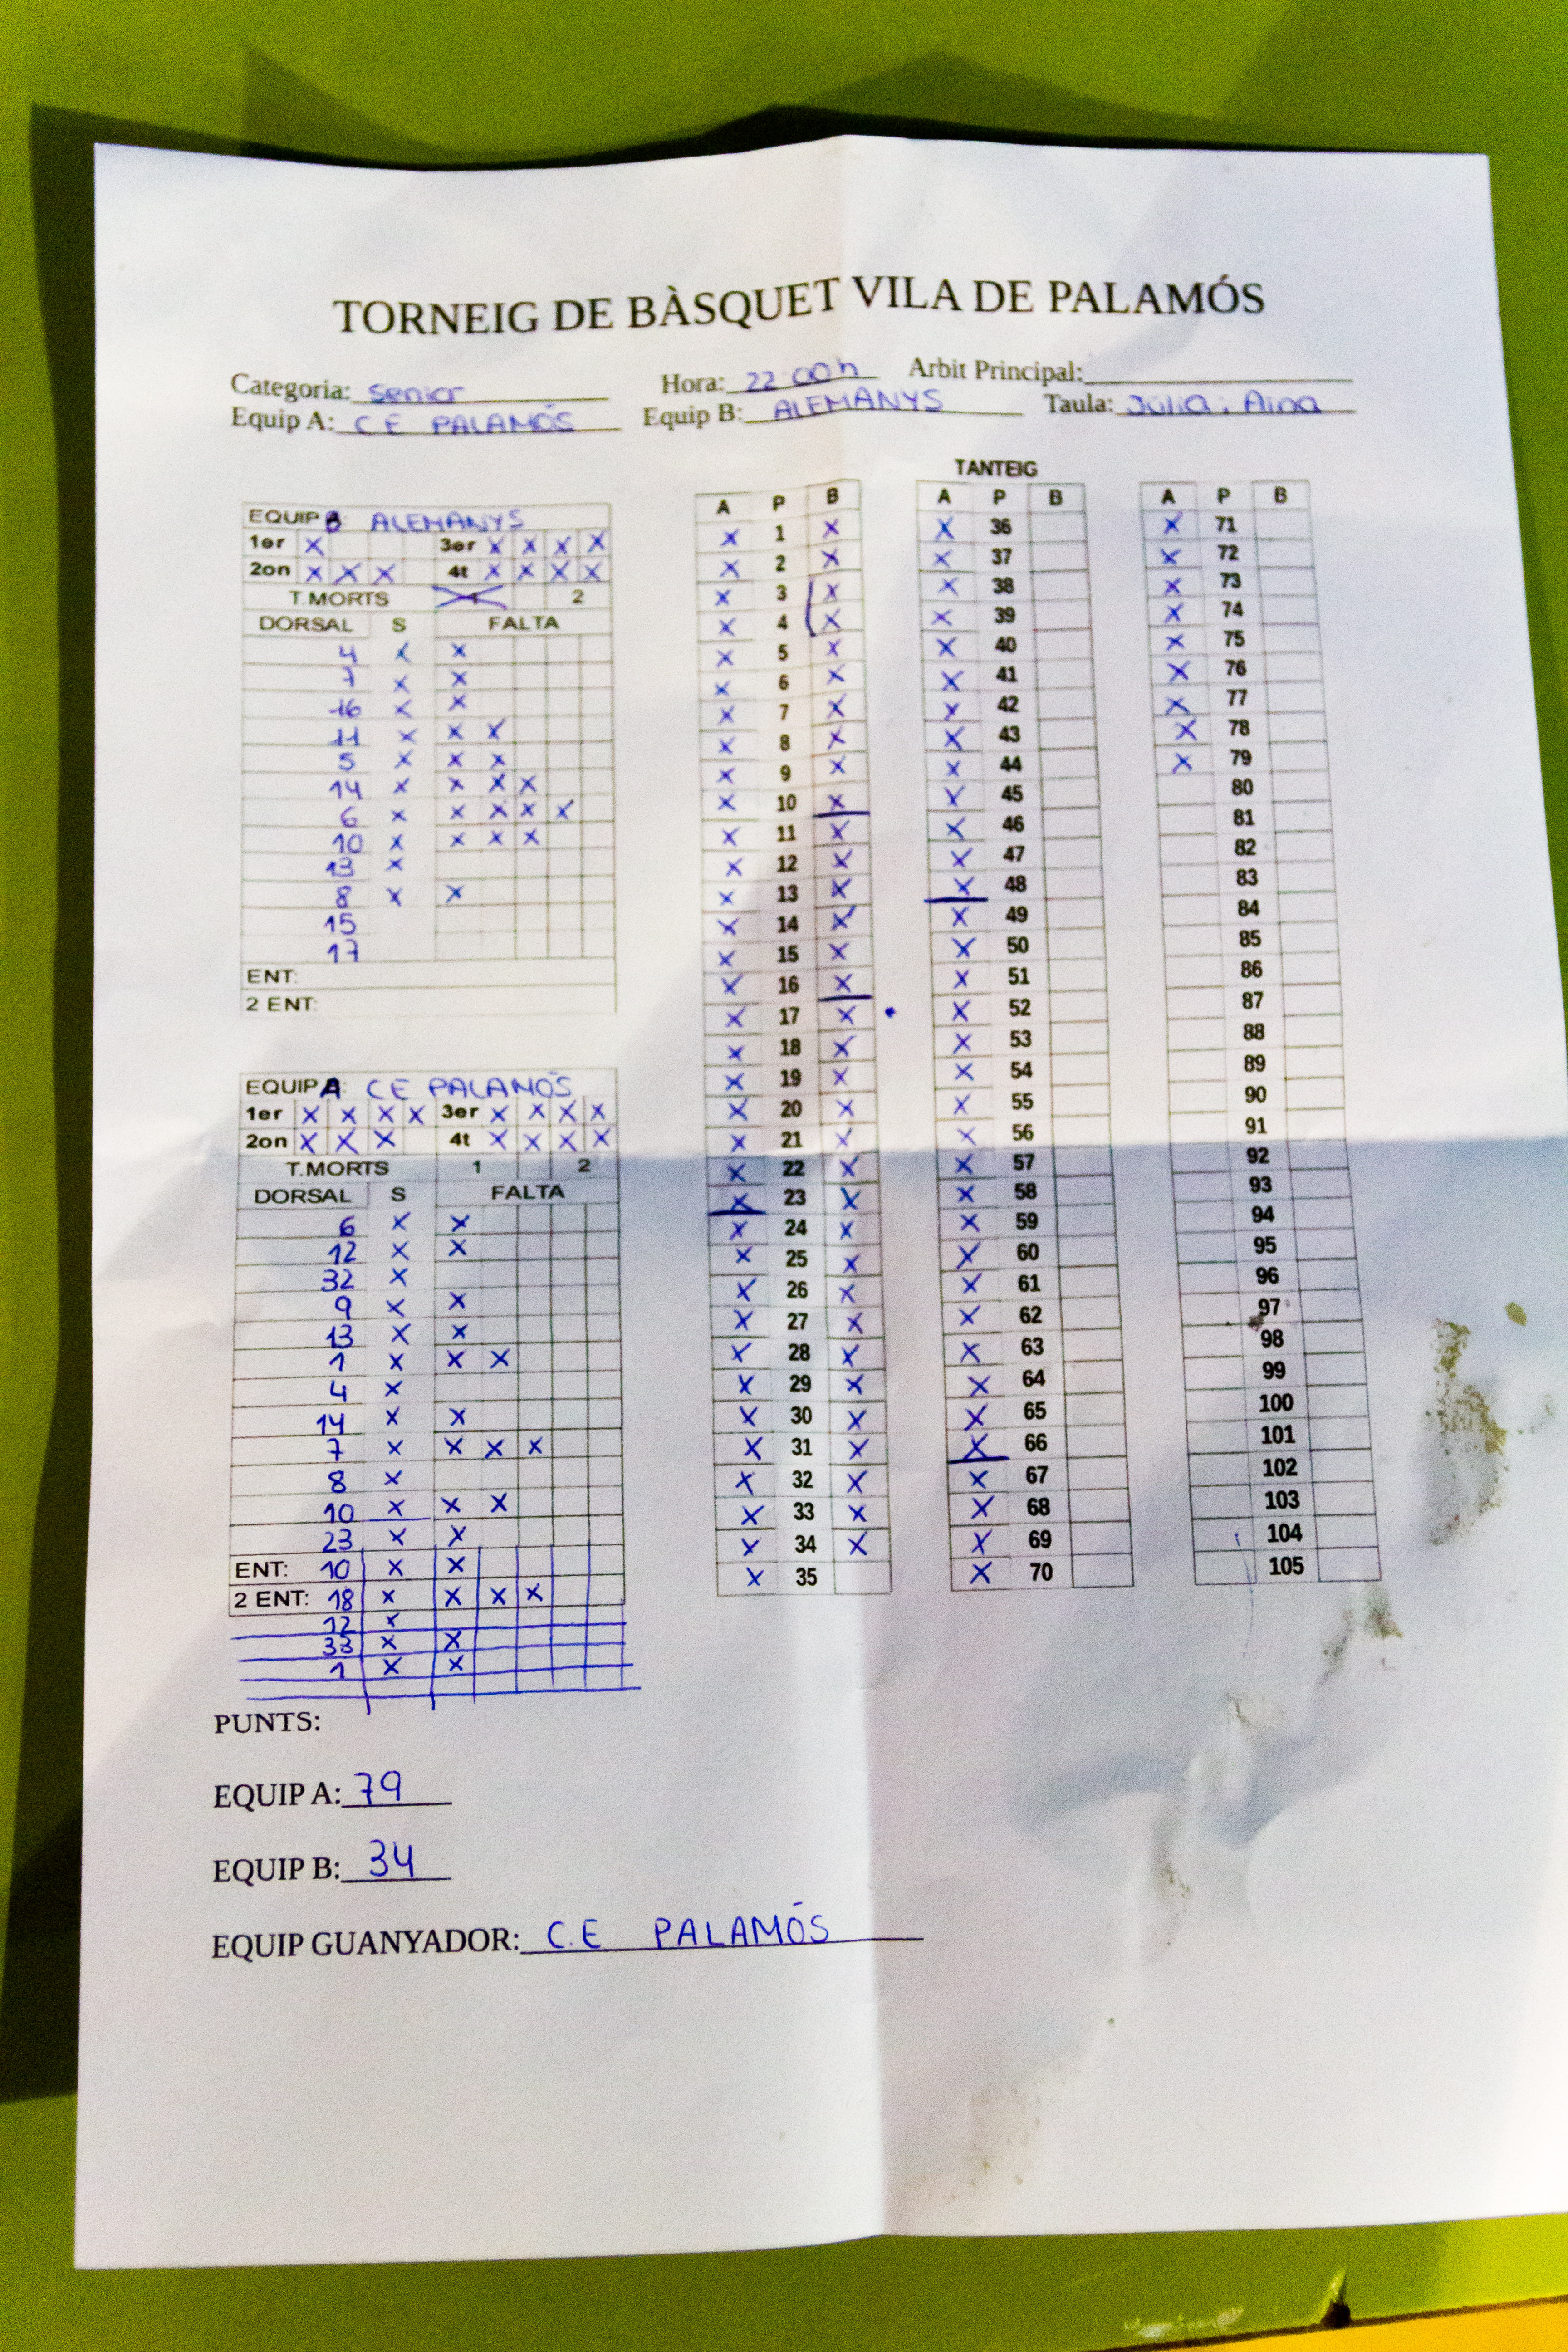 TORNEIG DE BÀSQUET VILA DE PALAMÓS
Categoria: Senior Hora: 22:00h Arbit Principal:
Equip A: C E PALAMÓS Equip B: ALEMANYS Taula: Júlia i Aina
EQUIP B: ALEMANYS
1er X 3er X X X X
2on X X X 4t X X X X
T.MORTS 1 2
DORSAL S FALTA
4 X X
7 X X
16 X X
11 X X X
5 X X X
14 X X X X
6 X X X X X
10 X X X X
13 X
8 X X
15
17
ENT:
2 ENT:
EQUIP A: CE PALAMÓS
1er X X X X 3er X X X X
2on X X X 4t X X X X
T.MORTS 1 2
DORSAL S FALTA
6 X X
12 X X
32 X
9 X X
13 X X
1 X X X
4 X
14 X X
7 X X X X
8 X
10 X X X
23 X X
ENT: 10 X X
2 ENT: 18 X X X X
12 X
33 X X
1 X X
TANTEIG
A P B
X 1 X
X 2 X
X 3 X
X 4 X
X 5 X
X 6 X
X 7 X
X 8 X
X 9 X
X 10 X
X 11 X
X 12 X
X 13 X
X 14 X
X 15 X
X 16 X
X 17 X
X 18 X
X 19 X
X 20 X
X 21 X
X 22 X
X 23 X
X 24 X
X 25 X
X 26 X
X 27 X
X 28 X
X 29 X
X 30 X
X 31 X
X 32 X
X 33 X
X 34 X
X 35
A P B
X 36
X 37
X 38
X 39
X 40
X 41
X 42
X 43
X 44
X 45
X 46
X 47
X 48
X 49
X 50
X 51
X 52
X 53
X 54
X 55
X 56
X 57
X 58
X 59
X 60
X 61
X 62
X 63
X 64
X 65
X 66
X 67
X 68
X 69
X 70
A P B
X 71
X 72
X 73
X 74
X 75
X 76
X 77
X 78
X 79
80
81
82
83
84
85
86
87
88
89
90
91
92
93
94
95
96
97
98
99
100
101
102
103
104
105
PUNTS:
EQUIP A: 79
EQUIP B: 34
EQUIP GUANYADOR: C.E PALAMÓS